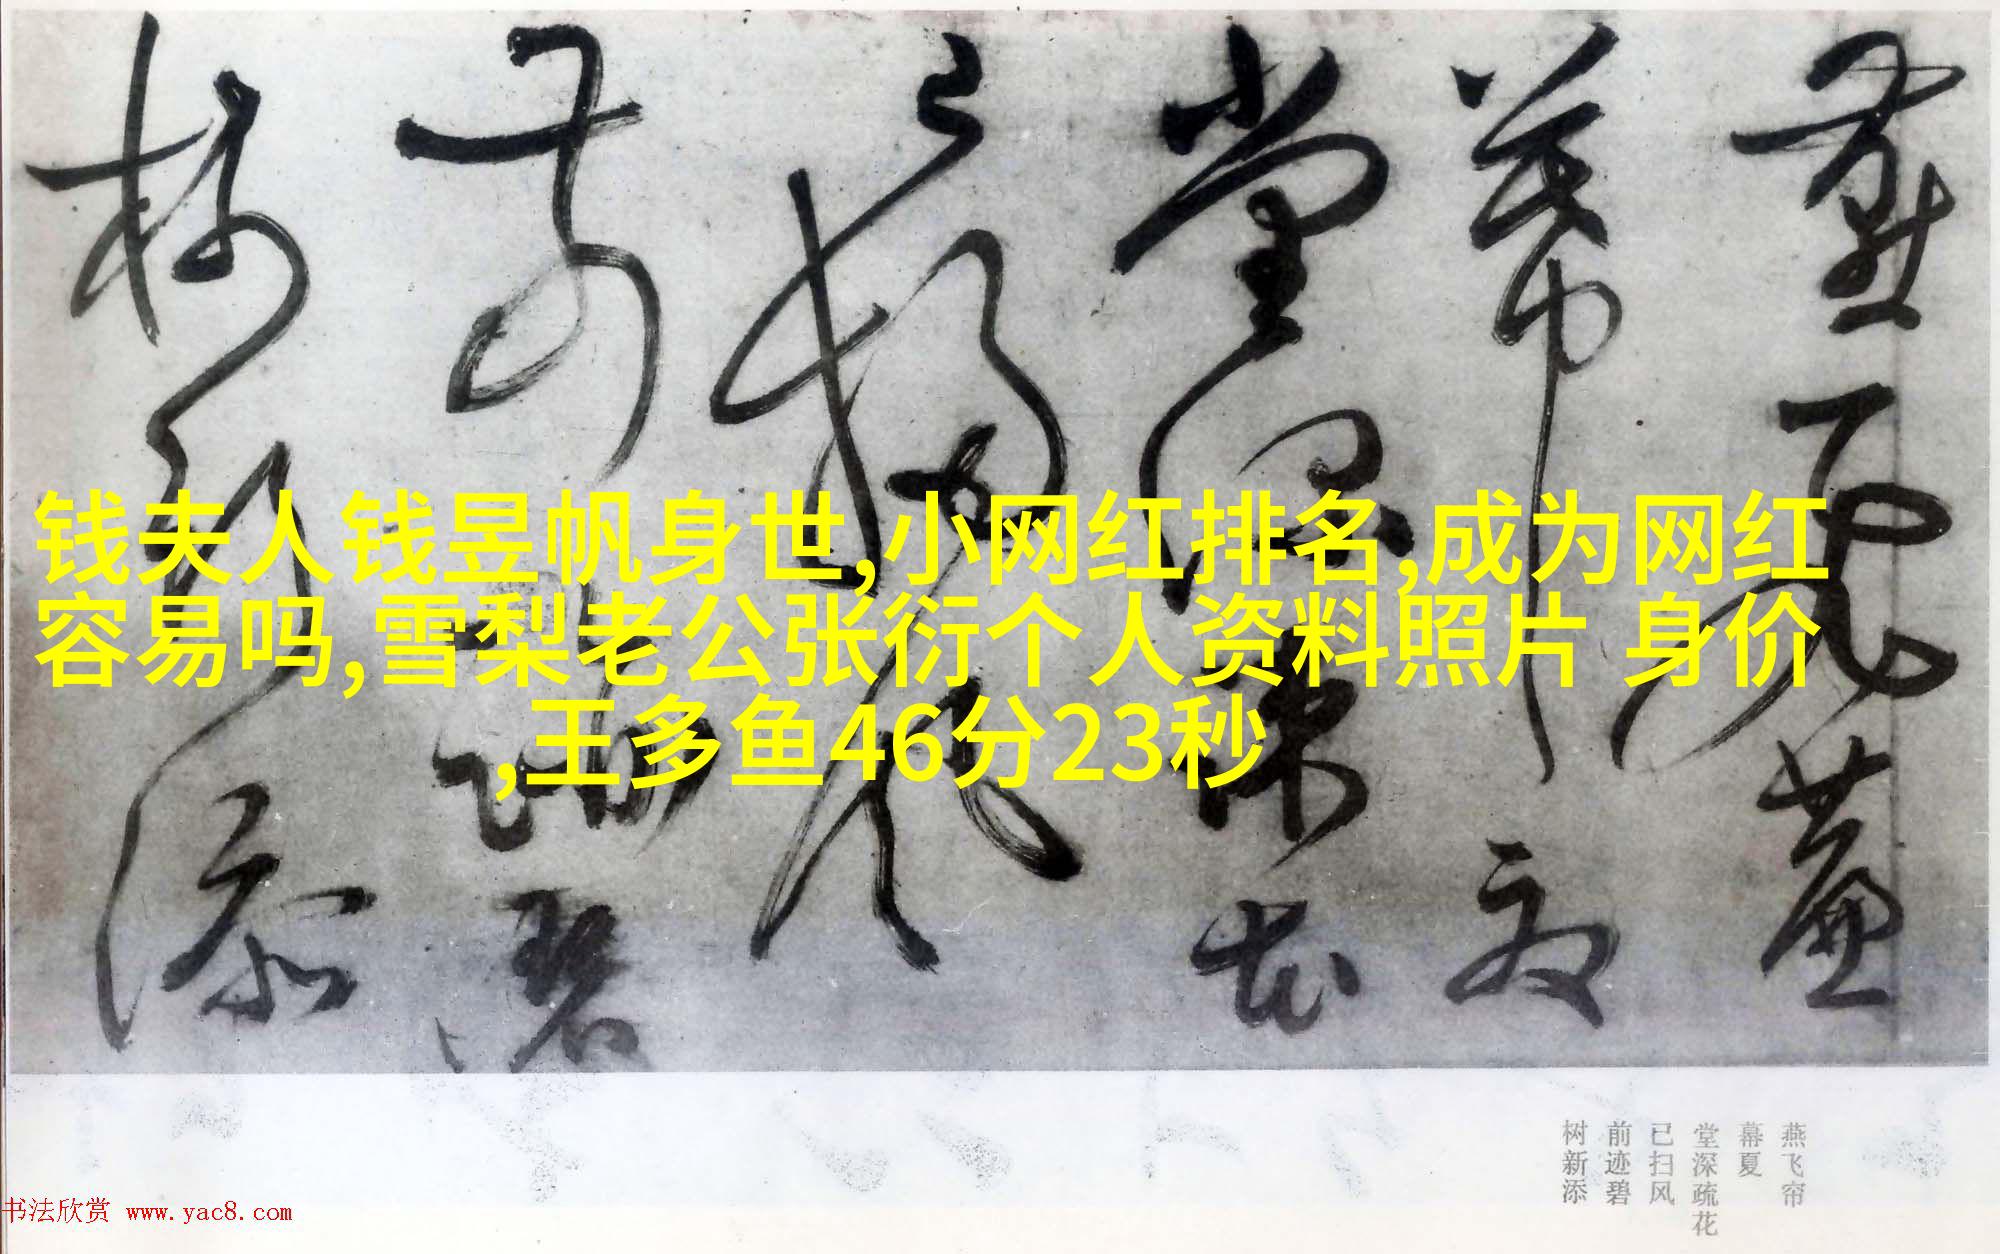 钱夫人钱昱帆身世,小网红排名,成为网红
容易吗,雪梨老公张衍个人资料照片 身价
,王多鱼46分23秒
燕飞帘
幕夏
堂深疏花
已扫风
前迹碧
树新添
燕飞帘
幕夏
堂深疏花
已扫风
前迹碧
树新添
书法欣赏 www.yac8.com